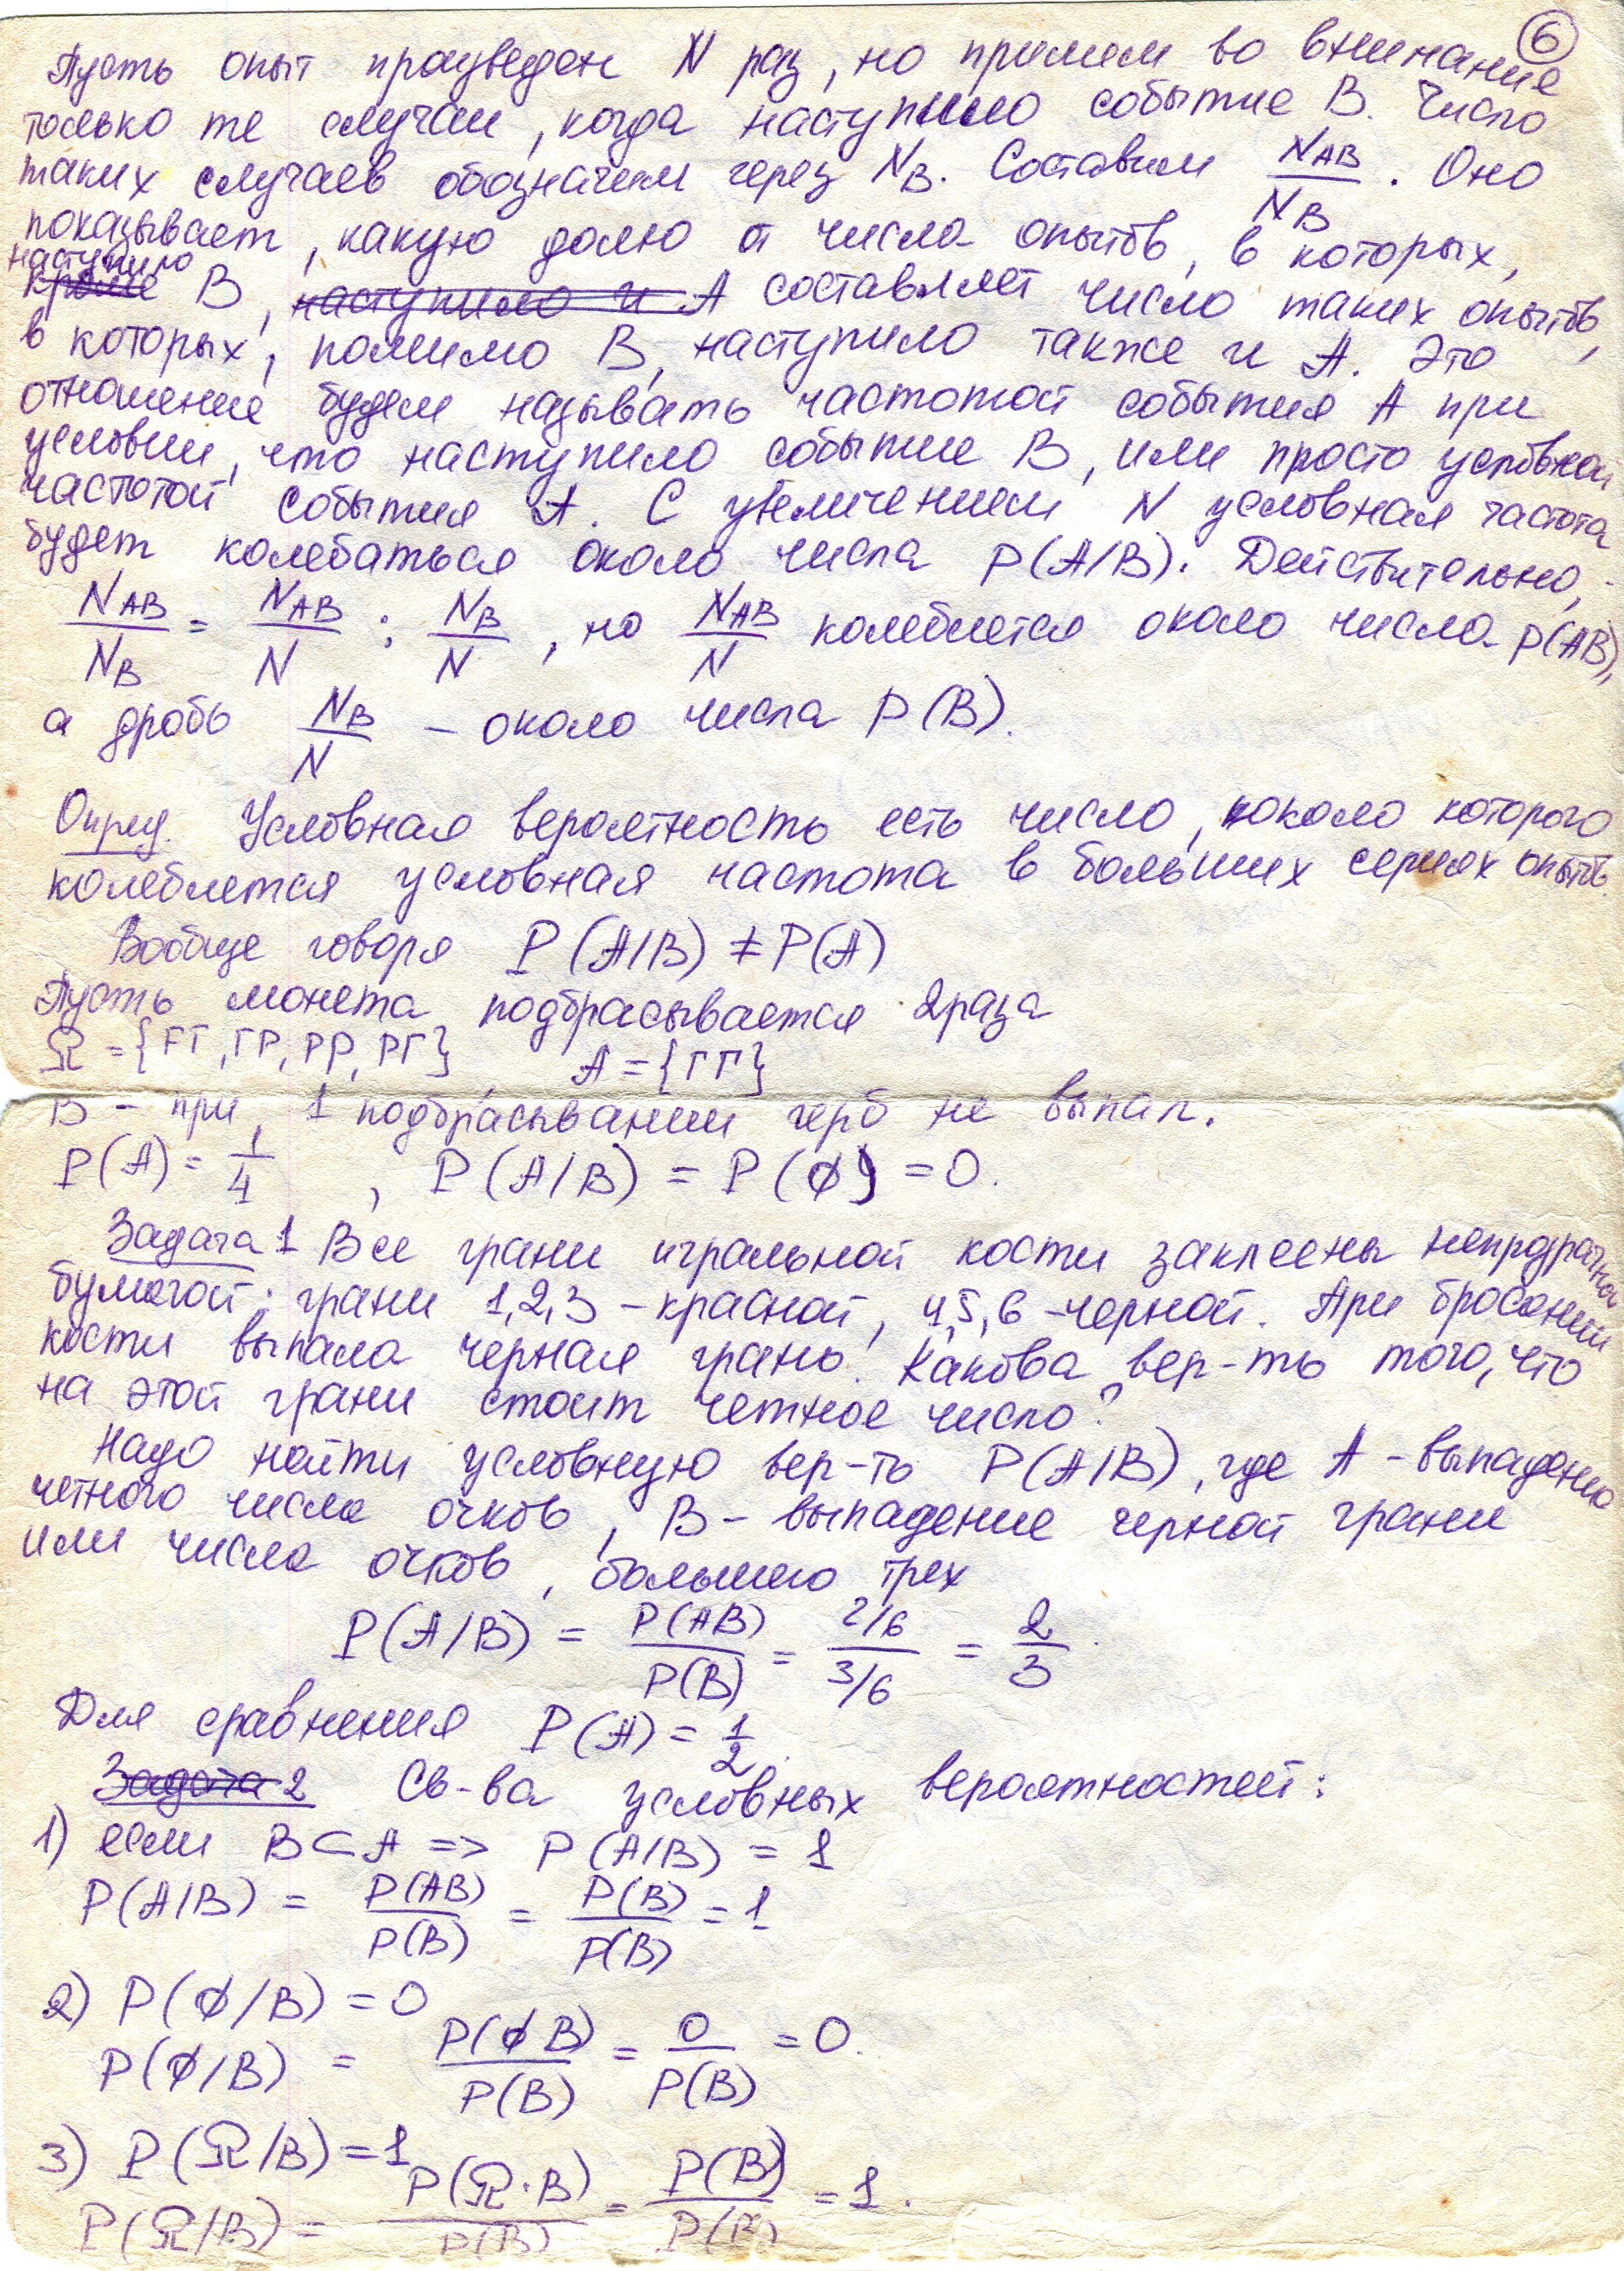 6
Пусть опыт произведен N раз, но примем во внимание
только те случаи, когда наступило событие B. Число
таких случаев обозначим через N_B. Составим N_AB/N_B. Оно
показывает, какую долю от числа опытов, в которых,
наступило
кроме B, наступило и A составляет число таких опытов,
в которых, помимо B, наступило также и A. Это
отношение будем называть частотой события A при
условии, что наступило событие B, или просто условной
частотой события A. С увеличением N условная частота
будет колебаться около числа P(A/B). Действительно,
N_AB/N_B = N_AB/N : N_B/N, но N_AB/N колеблется около числа P(AB),
а дробь N_B/N – около числа P(B).
Опред. Условная вероятность есть число, около которого
колеблется условная частота в больших сериях опытов
Вообще говоря P(A/B) ≠ P(A)
Пусть монета подбрасывается 2 раза
Ω = {ГГ, ГР, РР, РГ} A = {ГГ}
B – при 1 подбрасывании герб не выпал.
P(A) = 1/4, P(A/B) = P(∅) = 0.
Задача 1 Все грани игральной кости заклеены непрозрачной
бумагой: грани 1,2,3 – красной, 4,5,6 – черной. При бросании
кости выпала черная грань. Какова вер-ть того, что
на этой грани стоит четное число?
Надо найти условную вер-ть P(A/B), где A – выпадение
четного числа очков, B – выпадение черной грани
или числа очков, большего трех
P(A/B) = P(AB)/P(B) = (2/6)/(3/6) = 2/3.
Для сравнения P(A) = 1/2.
Задача 2 Св-ва условных вероятностей:
1) если B ⊂ A => P(A/B) = 1
P(A/B) = P(AB)/P(B) = P(B)/P(B) = 1
2) P(∅/B) = 0
P(∅/B) = P(∅B)/P(B) = 0/P(B) = 0.
3) P(Ω/B) = 1
P(Ω/B) = P(Ω·B)/P(B) = P(B)/P(B) = 1.